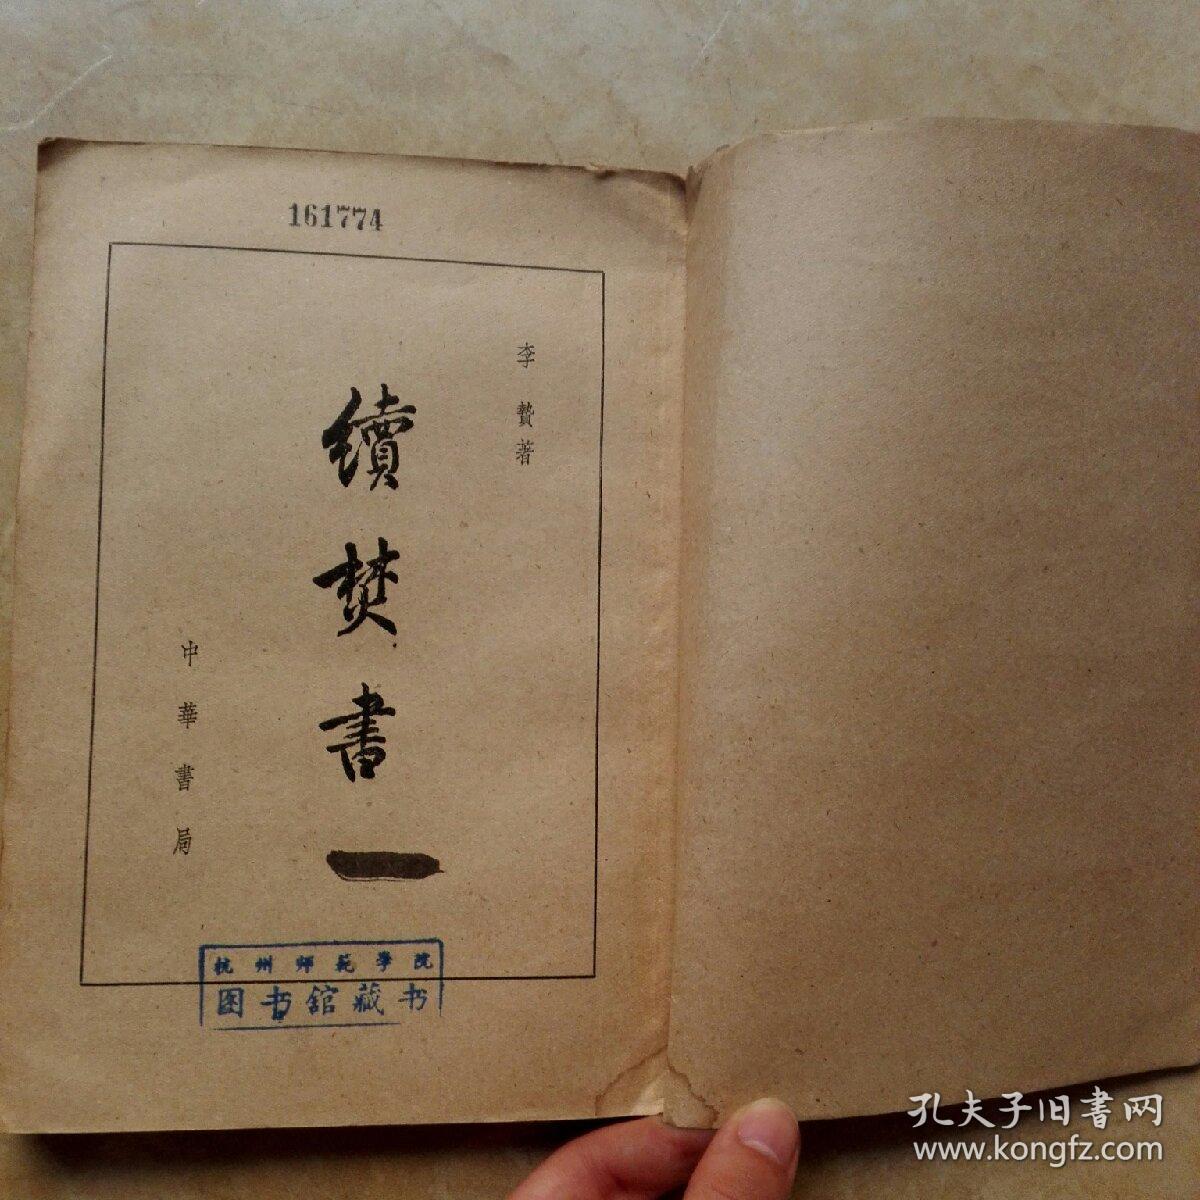 161774
李贄著
續焚書
中華書局
杭州师范学院
图书馆藏书
孔夫子旧書网
www.kongfz.com